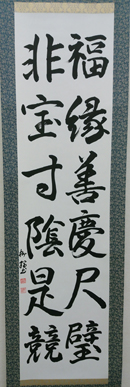 福緣善慶尺璧
非宝寸陰是競